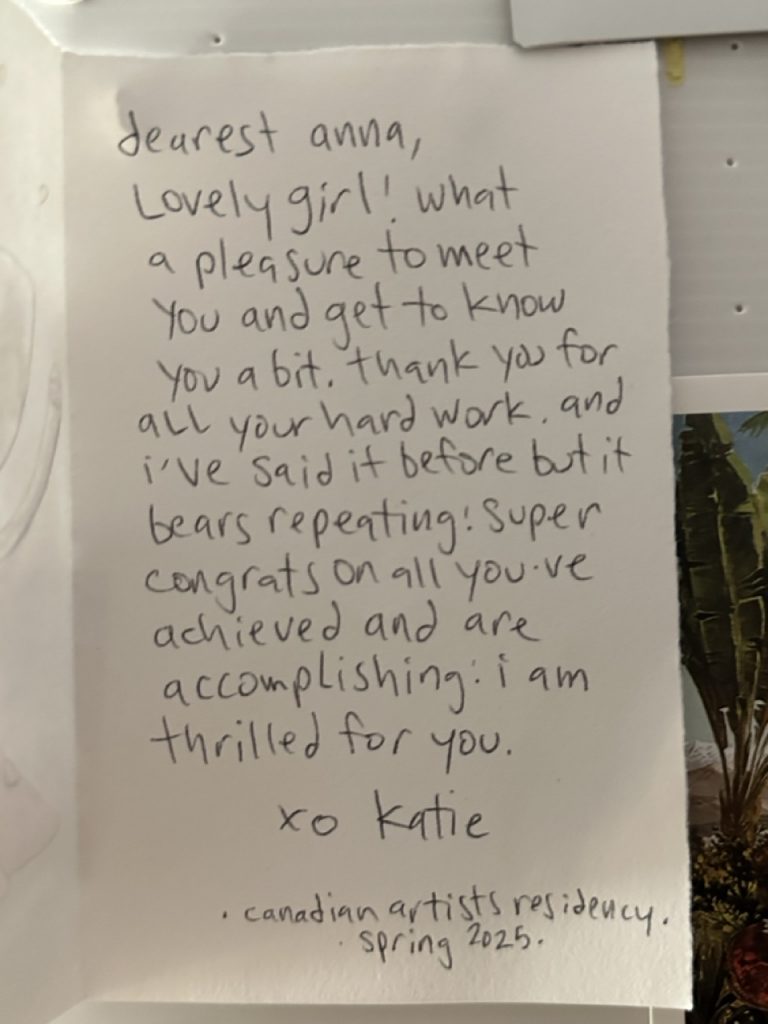 dearest anna,
Lovely girl! what
a pleasure to meet
you and get to know
you a bit. thank you for
all your hard work. and
i've said it before but it
bears repeating: super
congrats on all you've
achieved and are
accomplishing: i am
thrilled for you.
xo katie
· canadian artists residency.
· spring 2025.